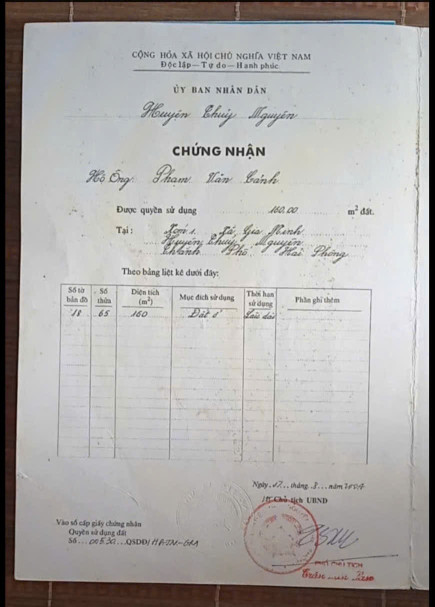 CỘNG HÒA XÃ HỘI CHỦ NGHĨA VIỆT NAM
Độc lập — Tự do — Hạnh phúc
ỦY BAN NHÂN DÂN
Huyện Thủy Nguyên
CHỨNG NHẬN
Hộ Ông Phạm Văn Cảnh
Được quyền sử dụng 160.00 m² đất.
Tại : Xóm 1. Xã Gia Minh
Huyện Thủy Nguyên
Thành Phố Hải Phòng
Theo bảng liệt kê dưới đây:
Số tờ bản đồ Số thửa Diện tích (m²) Mục đích sử dụng Thời hạn sử dụng Phần ghi thêm
18 65 160 Đất ở Lâu dài
Ngày 17 tháng 3 năm 2004
Chủ tịch UBND
Vào sổ cấp giấy chứng nhận
Quyền sử dụng đất
Số QSDĐ/